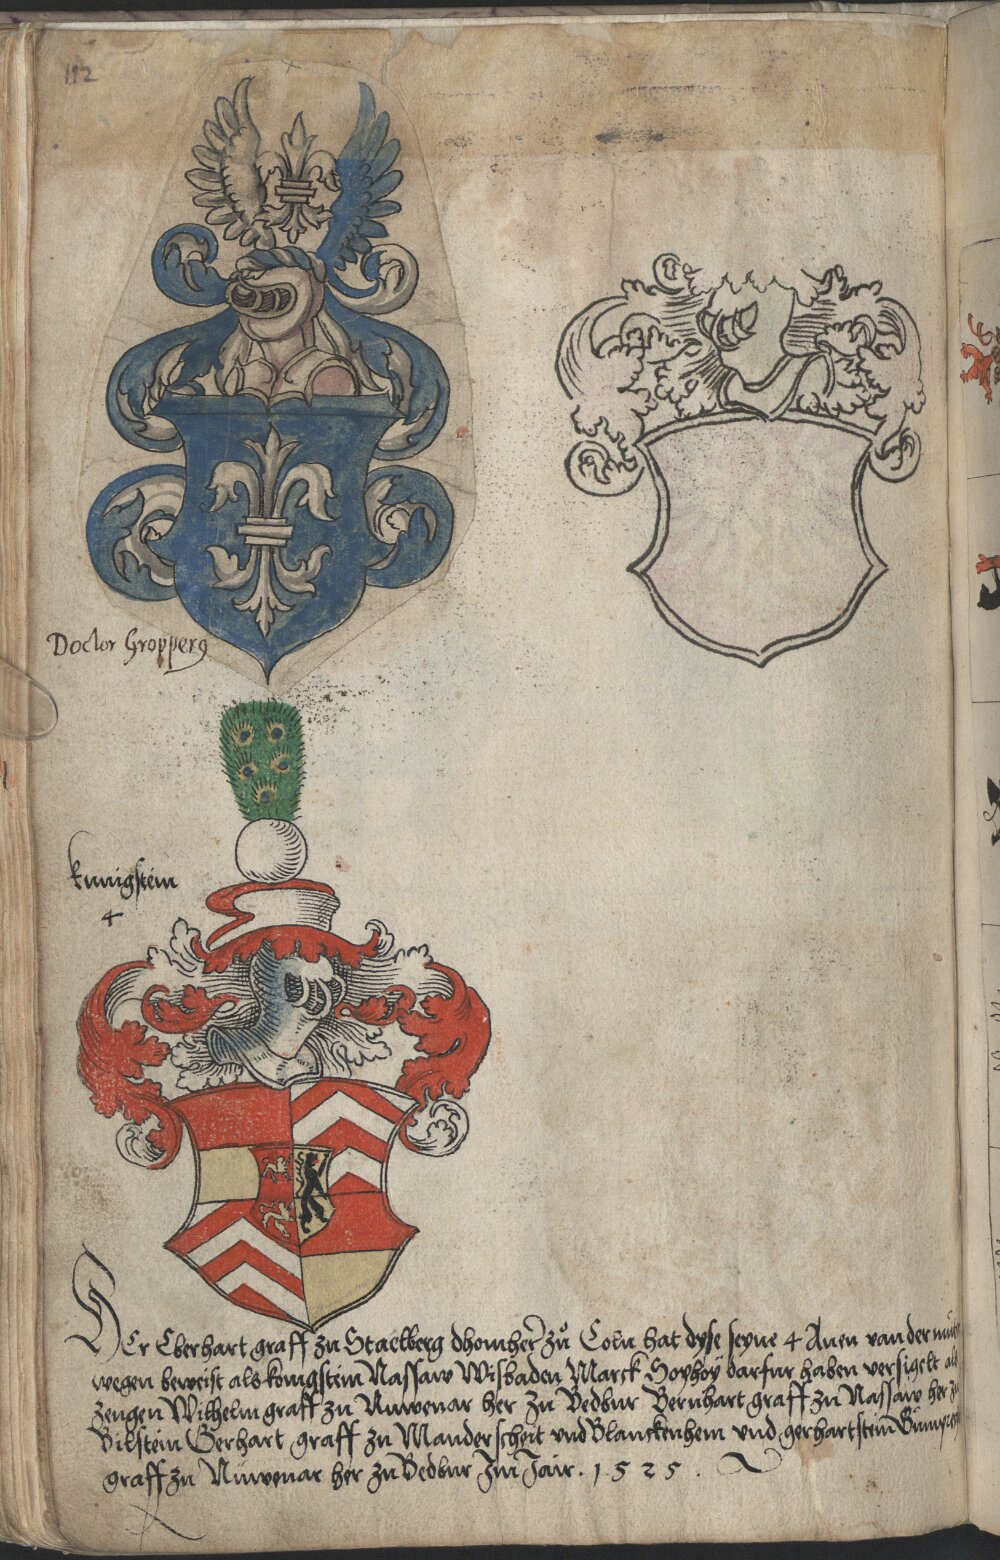 112
Doctor Gropperg
kunigstein
4
HEr Eberhart graff zu Staelberg dhomher zů Coln hat dyse seyne 4 Anen van der mut
wegen beweist als konigstein Nassaw Wisbaden Marck Sophoy darfur haben versigelt als
zeugen Wilhelm graff zu Nuwenar her zu Bedbur Bernhart graff zu Nassaw her zu
Bilstein Gerhart graff zu Manderscheit vnd Blanckenhem vnd gerhartstein
graff zu Nüwenar her zu Bedbur Im Jair . 1525 .